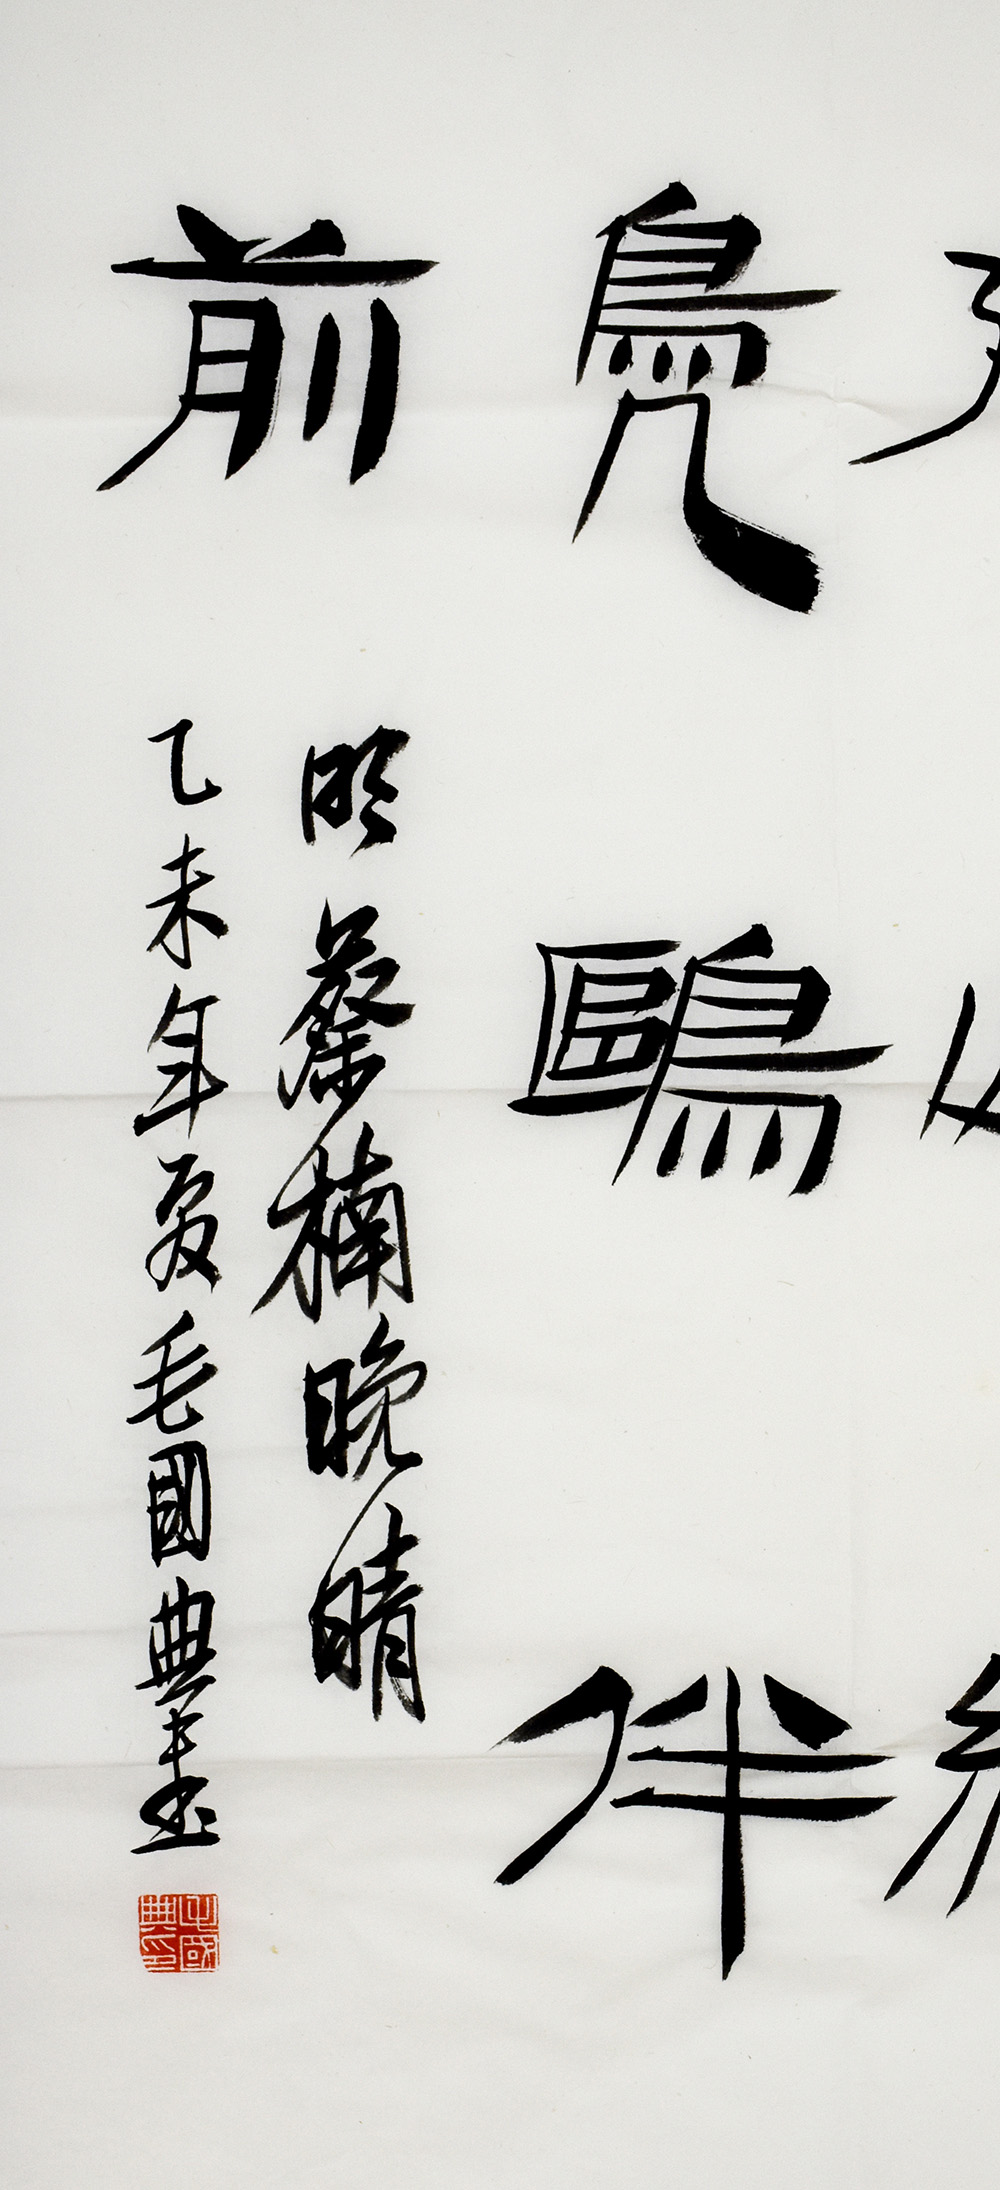 鳧鷗伴
前
明蔡楠晚晴
乙未年夏毛國典書
毛國典印